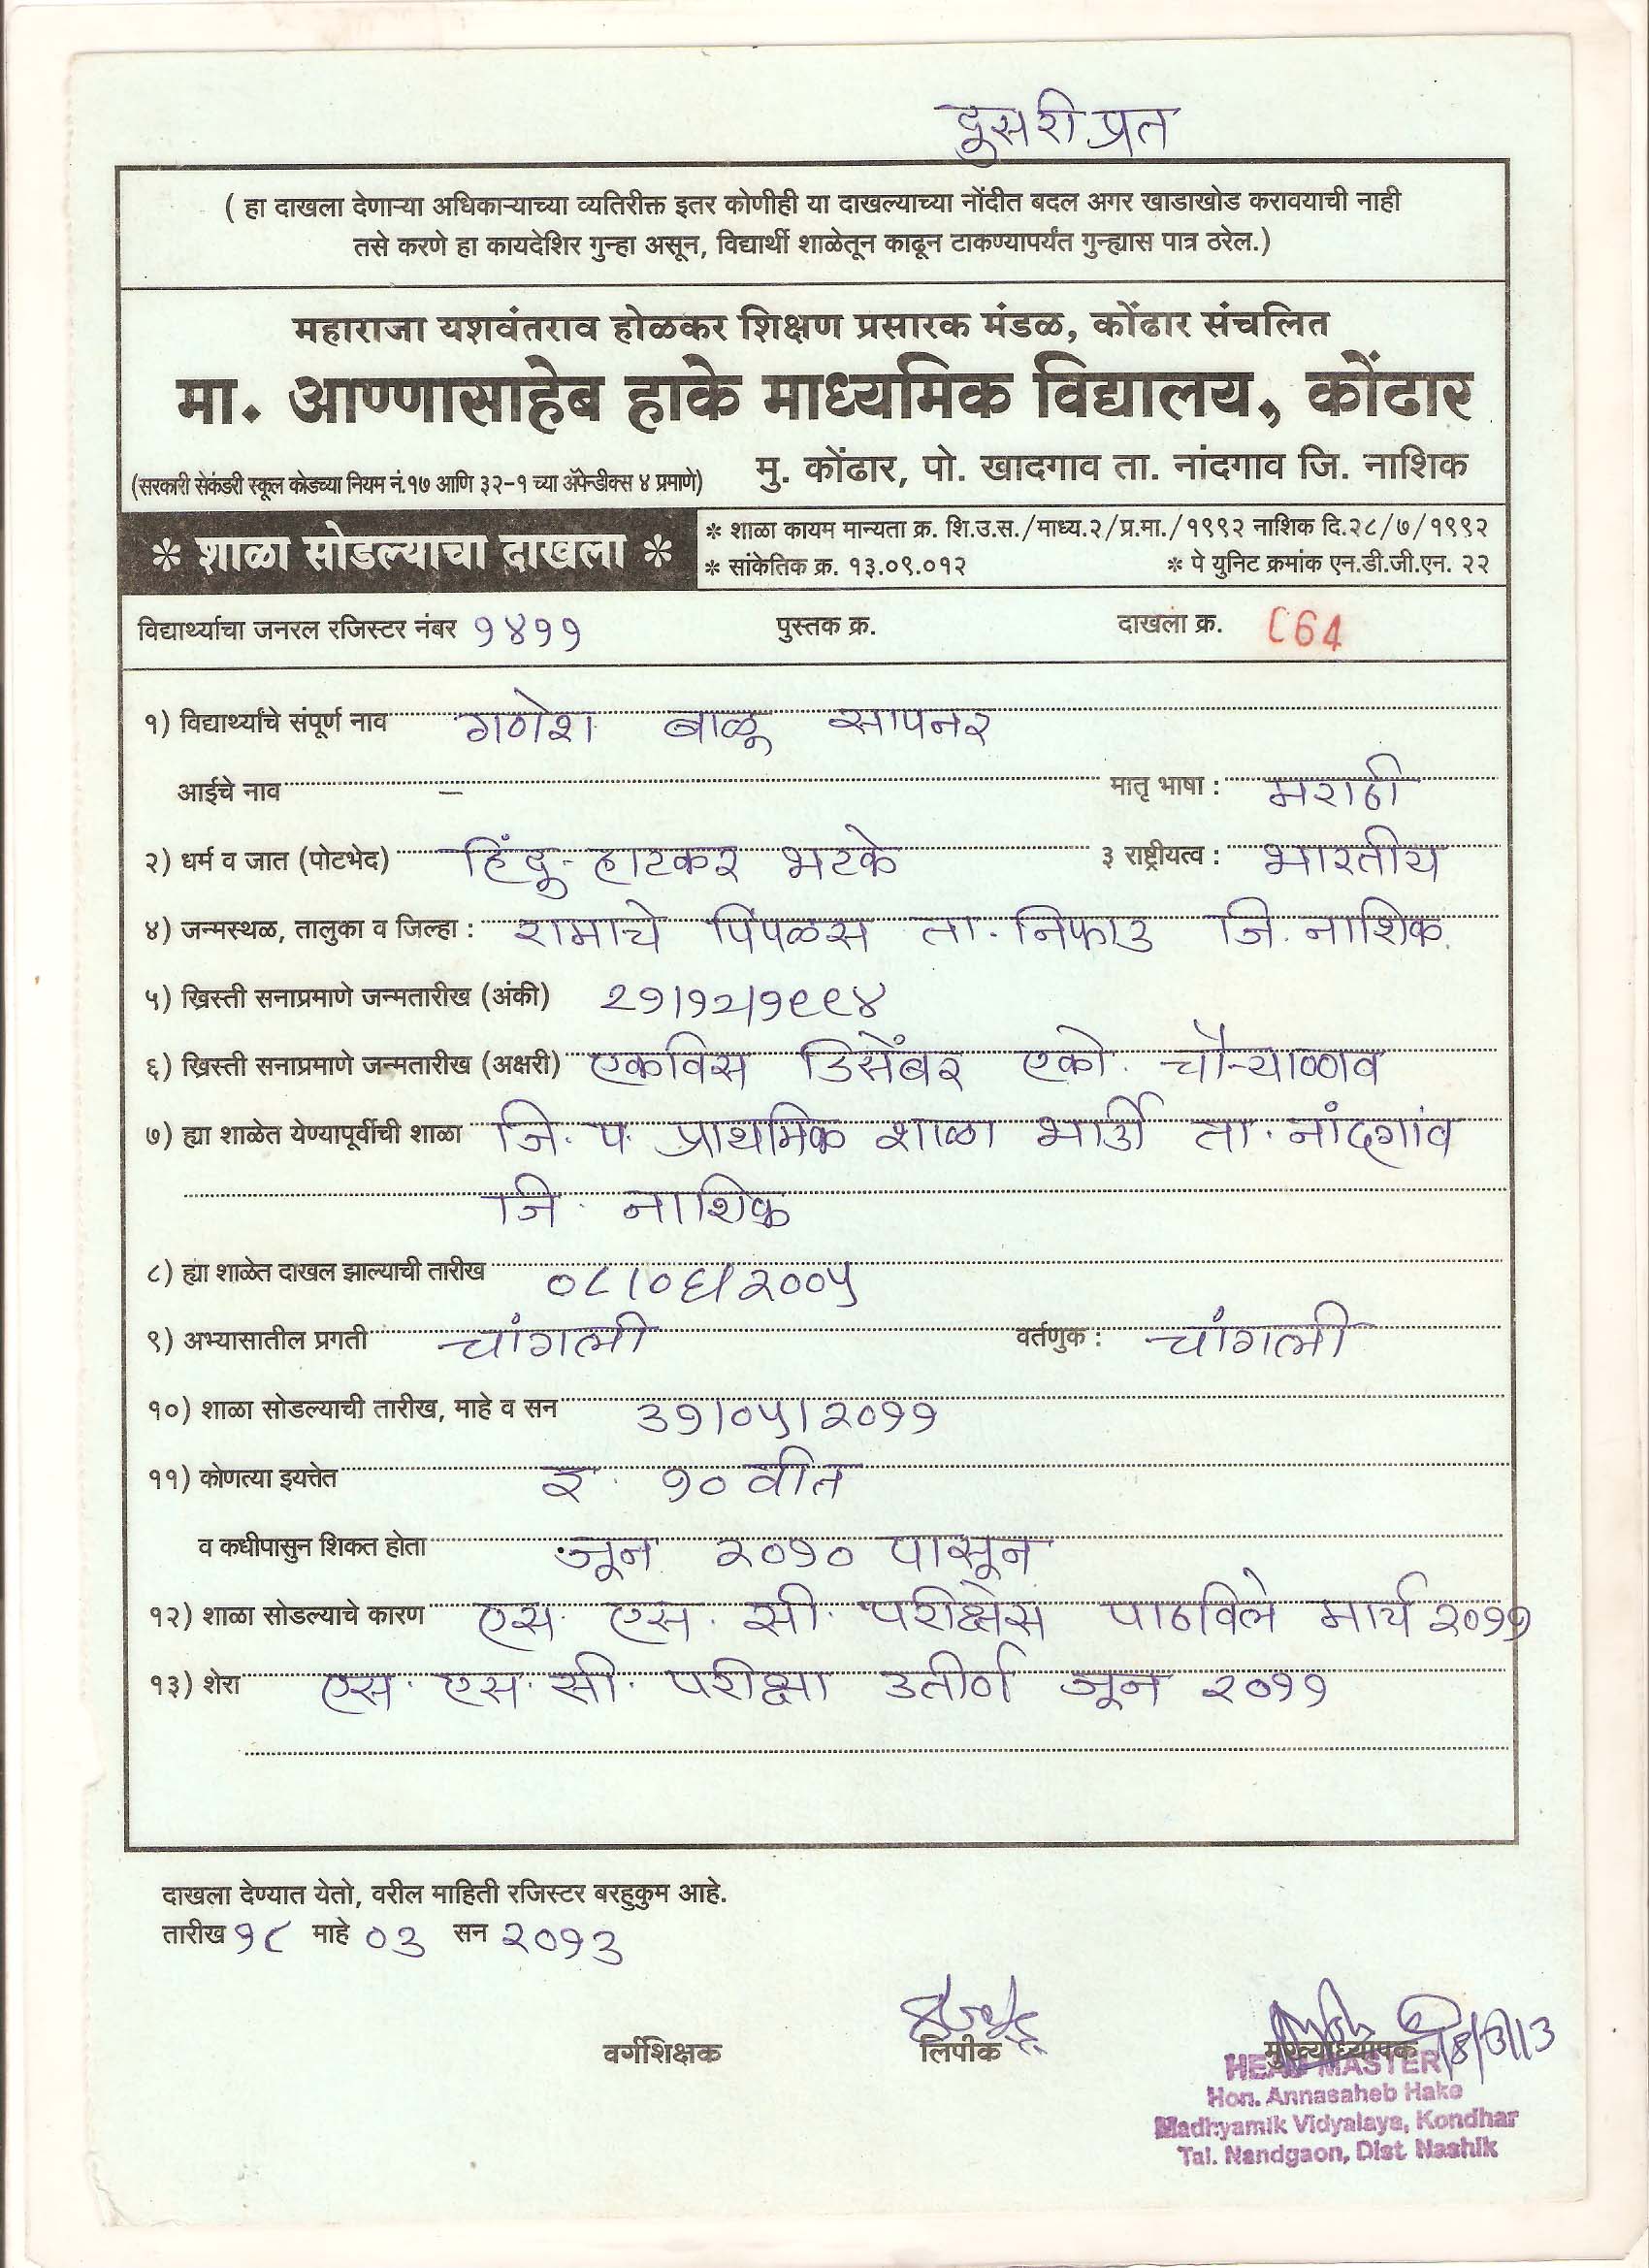 दुसरी प्रत
( हा दाखला देणाऱ्या अधिकाऱ्याच्या व्यतिरीक्त इतर कोणीही या दाखल्याच्या नोंदीत बदल अगर खाडाखोड करावयाची नाही
तसे करणे हा कायदेशिर गुन्हा असून, विद्यार्थी शाळेतून काढून टाकण्यापर्यंत गुन्ह्यास पात्र ठरेल.)
महाराजा यशवंतराव होळकर शिक्षण प्रसारक मंडळ, कोंढार संचलित
मा. आण्णासाहेब हाके माध्यमिक विद्यालय, कोंढार
मु. कोंढार, पो. खादगाव ता. नांदगाव जि. नाशिक
(सरकारी सेकंडरी स्कूल कोडच्या नियम नं.१७ आणि ३२-१ च्या ॲपेन्डीक्स ४ प्रमाणे)
* शाळा सोडल्याचा दाखला *
* शाळा कायम मान्यता क्र. शि.उ.स./माध्य.२/प्र.मा./१९९२ नाशिक दि.२८/७/१९९२
* सांकेतिक क्र. १३.०९.०१२ * पे युनिट क्रमांक एन.डी.जी.एन. २२
विद्यार्थ्याचा जनरल रजिस्टर नंबर १४११ पुस्तक क्र. दाखला क्र. 64
१) विद्यार्थ्यांचे संपूर्ण नाव गणेश बाळू सापनर
आईचे नाव – मातृ भाषा : मराठी
२) धर्म व जात (पोटभेद) हिंदू - हाटकर भटके ३ राष्ट्रीयत्व : भारतीय
४) जन्मस्थळ, तालुका व जिल्हा : रामाचे पिंपळस ता. निफाड जि. नाशिक.
५) ख्रिस्ती सनाप्रमाणे जन्मतारीख (अंकी) २१/१२/१९९४
६) ख्रिस्ती सनाप्रमाणे जन्मतारीख (अक्षरी) एकविस डिसेंबर एको. चौऱ्याण्णव
७) ह्या शाळेत येण्यापूर्वीची शाळा जि. प. प्राथमिक शाळा भार्डी ता. नांदगांव
जि. नाशिक
८) ह्या शाळेत दाखल झाल्याची तारीख ०८/०६/२००५
९) अभ्यासातील प्रगती चांगली वर्तणुक : चांगली
१०) शाळा सोडल्याची तारीख, माहे व सन ३१/०५/२०११
११) कोणत्या इयत्तेत इ. १० वीत
व कधीपासुन शिकत होता जून २०१० पासून
१२) शाळा सोडल्याचे कारण एस. एस. सी. परीक्षेस पाठविले मार्च २०११
१३) शेरा एस. एस. सी. परीक्षा उतीर्ण जून २०११
दाखला देण्यात येतो, वरील माहिती रजिस्टर बरहुकुम आहे.
तारीख १८ माहे ०३ सन २०१३
वर्गशिक्षक लिपीक मुख्याध्यापक 18/3/13
HEAD MASTER
Hon. Annasaheb Hake
Madhyamik Vidyalaya, Kondhar
Tal. Nandgaon, Dist. Nashik